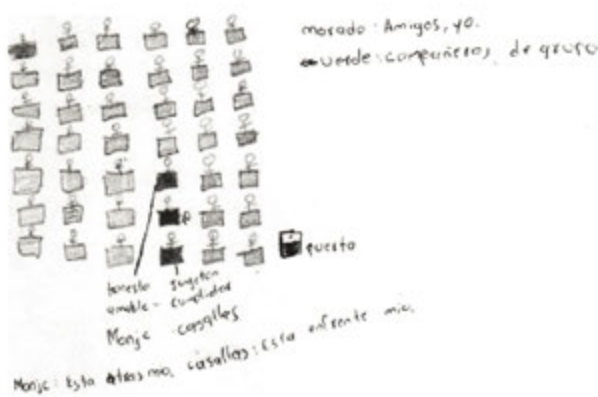 morado: Amigos, yo.
verde: compañeros, de grupo
puerta
honesto Jugeton
amable - Cumplidor
Monje casallas
Monje: Esta atras mio, casallas: Esta enfrente mio.